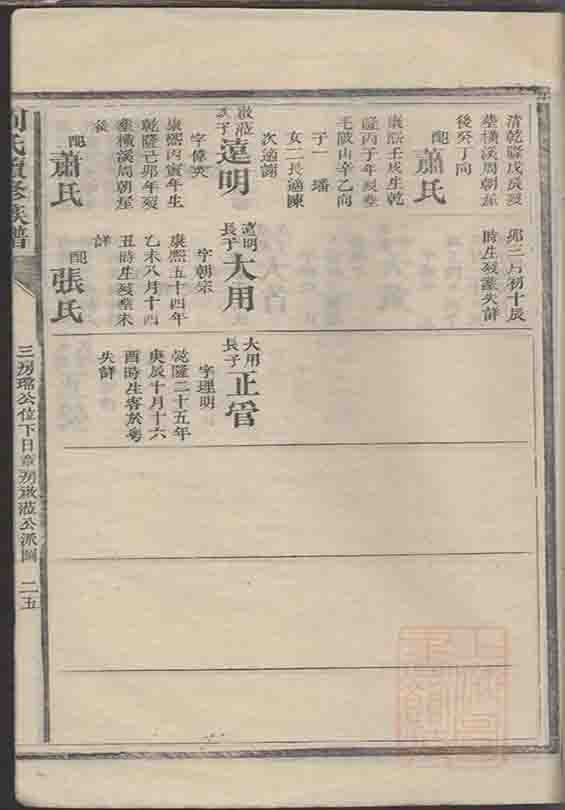 清乾隆戊辰歿
塟橫溪周朝坵
後癸丁向
配蕭氏
康熙壬戌生乾
隆丙子年歿塟
毛陂山辛乙向
子一 璠
女二長適陳
次適謝
敬蒞
次子
達明
字偉英
康熙丙寅年生
乾隆己卯年歿
塟橫溪周朝坵
後
配蕭氏
卯二月初十辰
時生歿塟失詳
達明
長子
大用
字朝宗
康熙五十四年
乙未八月十四
丑時生歿塟未
詳
配張氏
大用
長子
正管
字理明
乾隆二十五年
庚辰十月十六
酉時生客於粵
失詳
氏續修族譜
三房璿公位下日章房敬蒞公派圖 二五